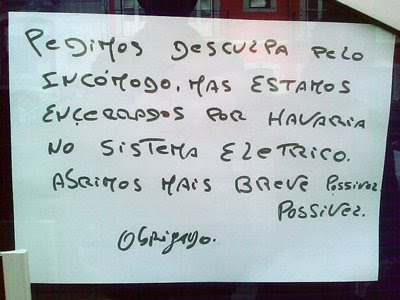 PEDIMOS DESCULPA PELO
INCÓMODO, MAS ESTAMOS
ENÇERRADOS POR HAVARIA
NO SISTEMA ELETRICO.
ABRIMOS MAIS BREVE POSSIVEL
POSSIVEL.
Obrigado.